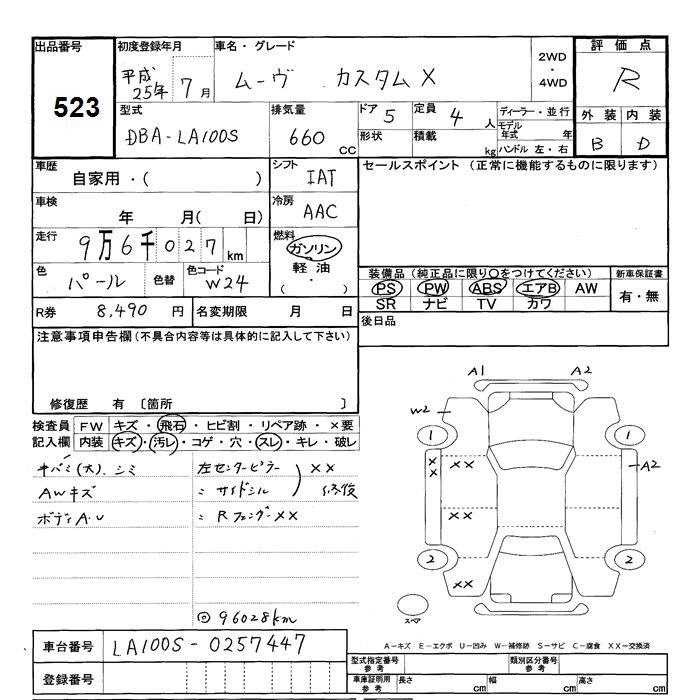 出品番号
523
初度登録年月
平成
25年 7月
車名・グレード
ムーヴ カスタムX
2WD
・
4WD
評価点
R
外装 内装
B D
型式
DBA-LA100S
排気量
660 CC
ドア 5
定員 4 人
形状
積載 kg
ディーラー・並行
モデル年式 年
ハンドル 左・右
車歴
自家用・( )
シフト
IAT
セールスポイント (正常に機能するものに限ります)
車検
年 月( 日)
冷房
AAC
走行
9万6千027km
燃料
ガソリン
軽油
( ・ )
色
パール
色替
色コード
W24
装備品(純正品に限り○をつけてください)
PS PW ABS エアB AW
SR ナビ TV カワ
新車保証書
有・無
R券 8,490 円
名変期限 月 日
後日品
注意事項申告欄(不具合内容等は具体的に記入して下さい)
修復歴 有 〔箇所 〕
検査員記入欄
FW キズ・飛石・ヒビ割・リペア跡・×要
内装 キズ・汚レ・コゲ・穴・スレ・キレ・破レ
キバミ(大)、シミ
AWキズ
ボディA・U
左センターピラー ××
〃 サイドシル 修復
〃 Rフェンダー××
◎96028km
A1 A2
W2
1 1
×
×
××
A2
××
2 2
××
スペア
A-キズ E-エクボ U-凹み W-補修跡 S-サビ C-腐食 XX-交換済
車台番号 LA100S-0257447
登録番号
型式指定番号
類別区分番号
車庫証明用参考
長さ cm
幅 cm
高さ cm